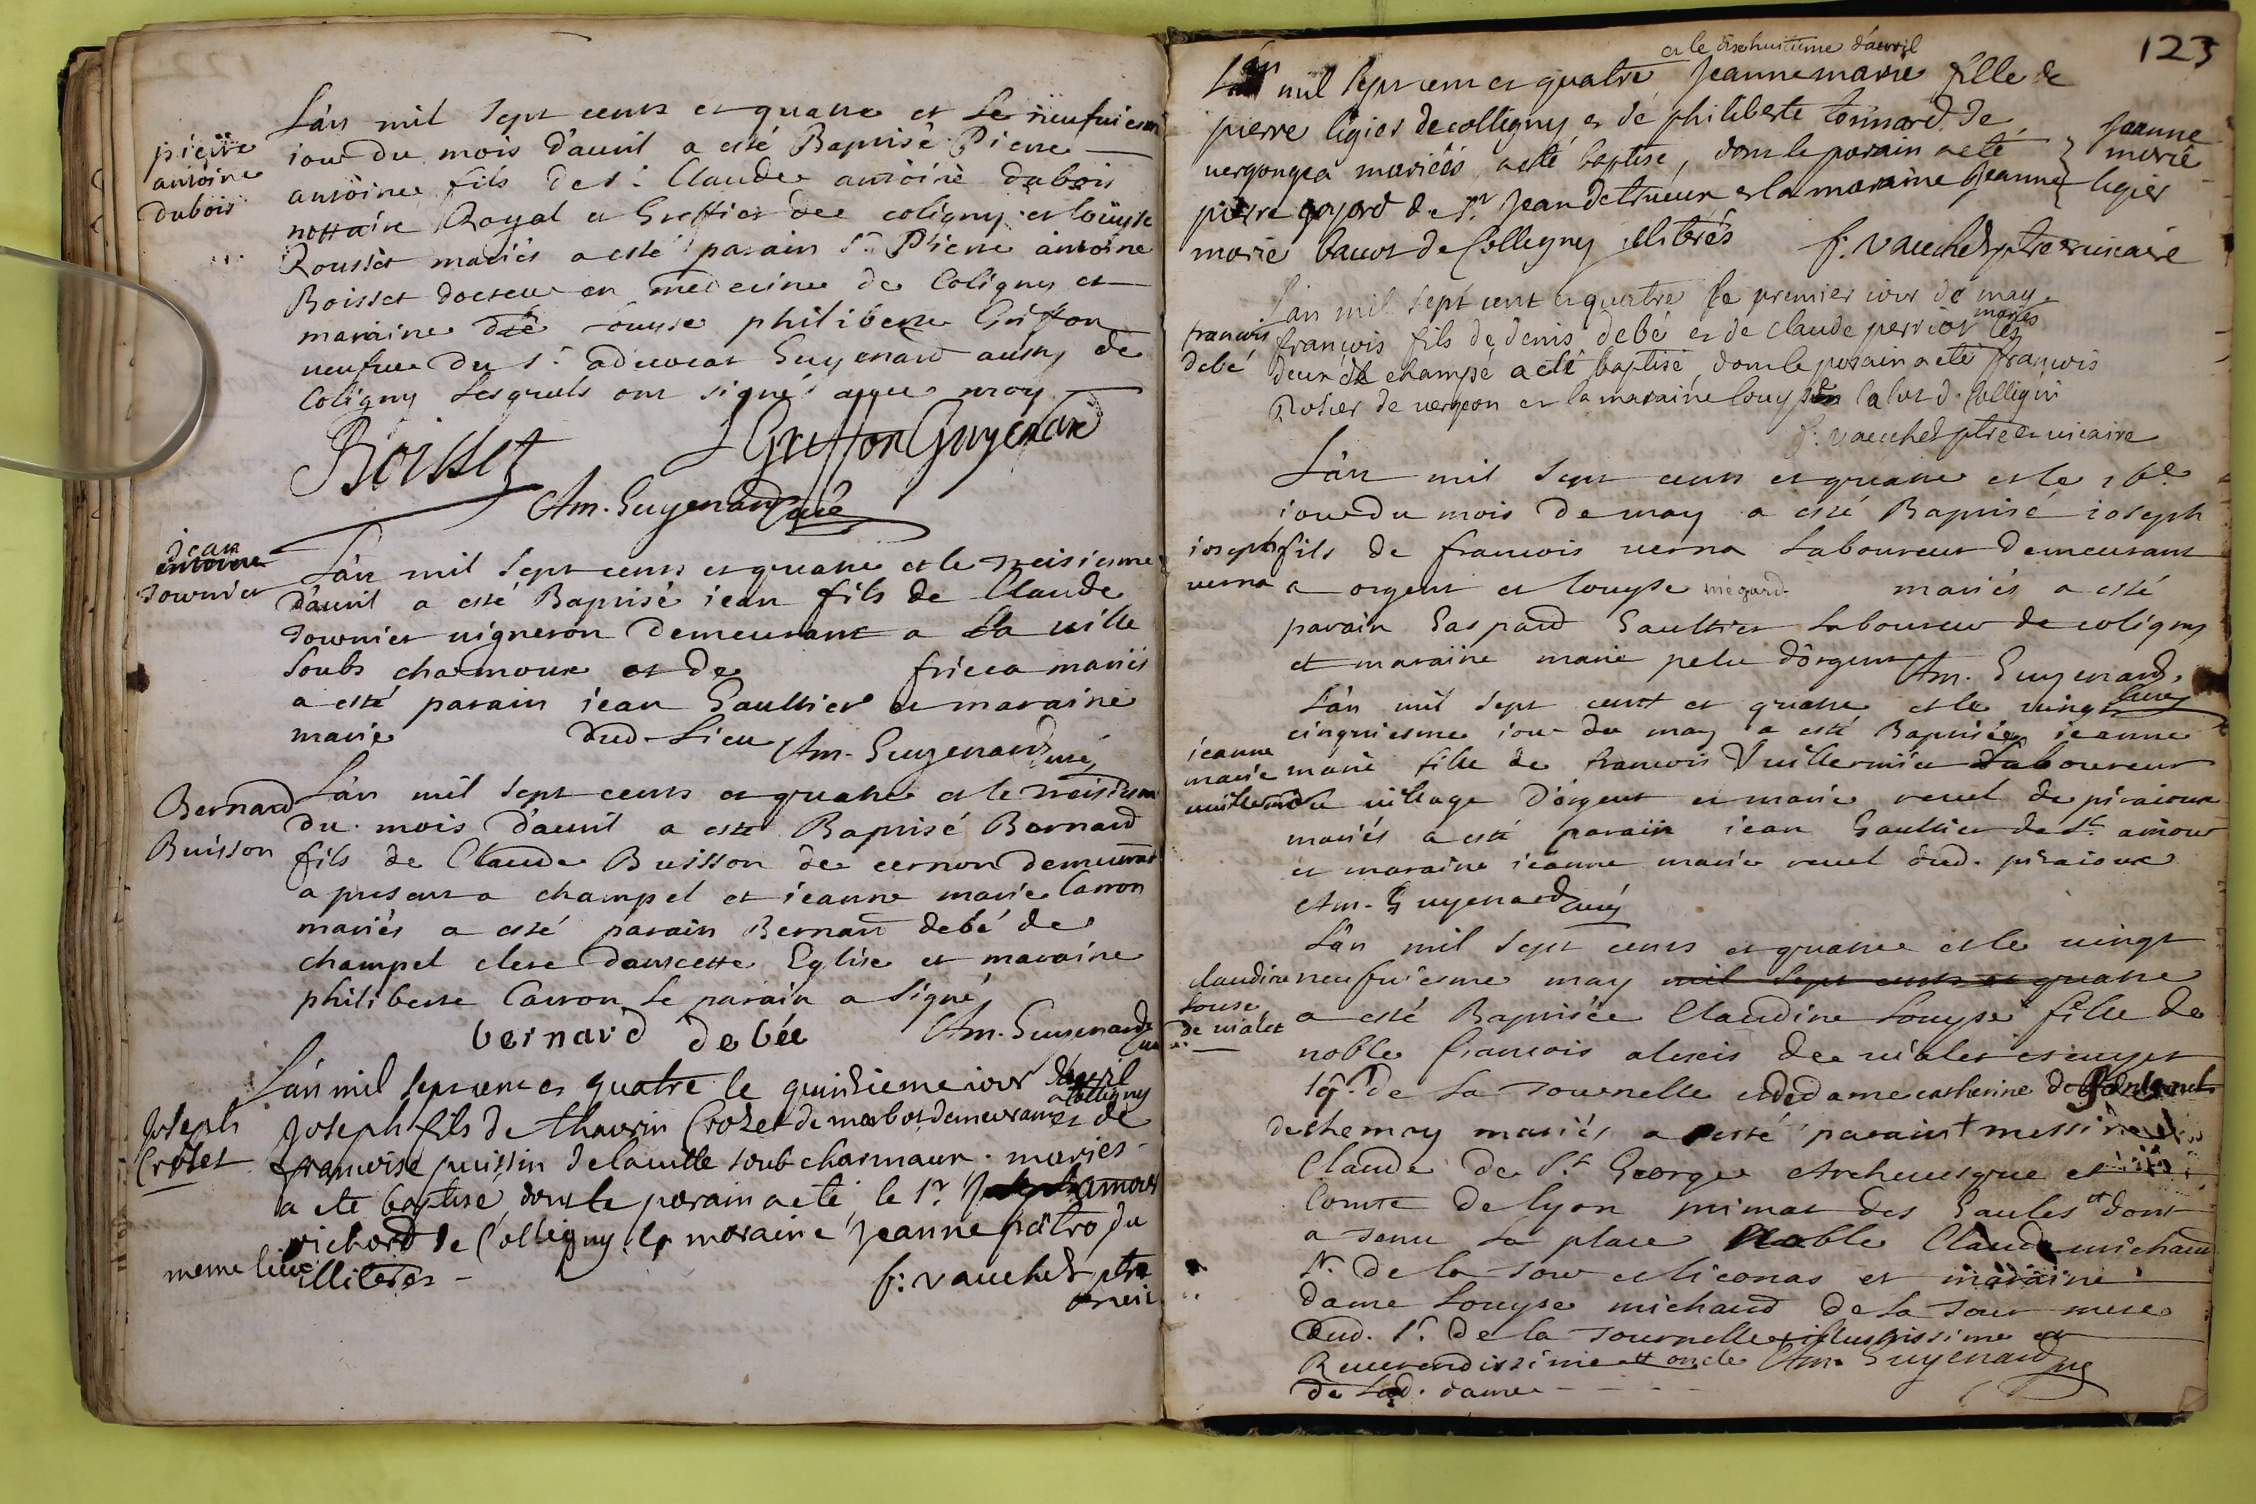 pierre
antoine
dubois
L'an mil sept cents et quatre et le neufuiesme
iour du mois d'auril a esté Baptisé Pierre
antoine fils de s.r Claude antoine dubois
nottaire Royal et Greffier de coligny et louyse
Rousset mariés a esté parain s.r Pierre antoine
Boisset docteur en medecine de Coligny et
maraine d.e louyse philiberte Griffon
neufue du s.r aduocat Guyenard aussy de
Coligny lesquels ont signés auec moy
Boisset L Griffon Guyenard
Am. Guyenard curé
jean
antoine
Tournier
L'an mil sept cents et quatre et le treisiesme
d'auril a esté Baptisé iean fils de Claude
Tournier uigneron demeurant a la uille
soubs charmoux et de fricca mariés
a esté parain iean Gaulthier et maraine
marie dud. lieu Am. Guyenard curé
Bernard
Buisson
L'an mil sept cents et quatre et le treisiesme
du mois d'auril a esté Baptisé Bernard
fils de Claude Buisson de cernon demeurant
a present a champel et ieanne marie Carron
mariés a esté parain Bernard debé de
champel clerc dans cette Eglise et maraine
philiberte Carron le parain a signé
bernard debée Am. Guyenard
curé
Joseph
Crozet
L'an mil sept cent et quatre le quinzieme iour d'avril
Joseph fils de thaurin Crozet de marbos demeurant a Colligny et de
francoise puissin de la uille soub charmaux mariés
a ete baptisé, dont le parain a eté le s.r Joseph amour
richard de Colligny la maraine Jeanne patro du
meme lieu illiterés f: vauchez ptre
et uic
123
et le dixhuitieme d'avril
L'an mil sept cent et quatre Jeanne marie fille de
pierre ligier de colligny et de philiberte tournard de
uergongea mariés a eté baptisé, dont le parain a eté
pierre goyard de s.t Jean detrieux et la maraine Jeanne
marie bauos de Colligny illiterés f: vauchez ptre et uicaire
Jeanne
marie
ligier
francois
debé
L'an mil sept cent et quatre le premier iour de may
françois fils de denis debé et de claude perrior mariés
de champé a eté baptisé, dont le parain a eté françois
Rosier de uergeon et la maraine louyse d. Colligni
f: vauchez ptre et uicaire
ioseph
uerna
L'an mil sept cents et quatre et le 16.e
iour du mois de may a esté Baptisé ioseph
fils de francois uerna laboureur demeurant
a orgent et louyse mégard mariés a esté
parain Gaspard Gaulthier laboureur de coligny
et maraine marie pelu d'orgent Am. Guyenard
curé
ieanne
marie
uuillermin
L'an mil sept cent et quatre et le uingt
cinquiesme iour du may a esté Baptisée ieanne
marie fille de francois Vuillermin laboureur
du uillage d'orgent et marie reuel de piraioux
mariés a esté parain iean Gaulthier de s.t amour
et maraine ieanne marie reuel dud. piraioux
Am. Guyenard curé
claudine
louse
de uialet
L'an mil sept cents et quatre et le uingt
neufuiesme may mil sept cents et quatre
a esté Baptisée Claudine Louyse fille de
noble francois alexis de uialet escuyer
sg.r de la tournelle et de dame catherine de
de chemay mariés a esté parain messire
Claude de S.t George Archeuesque et
Comte de lyon primat des Gaules et dont
a tenu la place Noble Claude michaud
s.r de la tour et liconas et maraine
dame Louyse michaud de la tour mere
dud. s.r de la tournelle illustrissime et
Reuerendissime oncle Am. Guyenard
de lad. dame